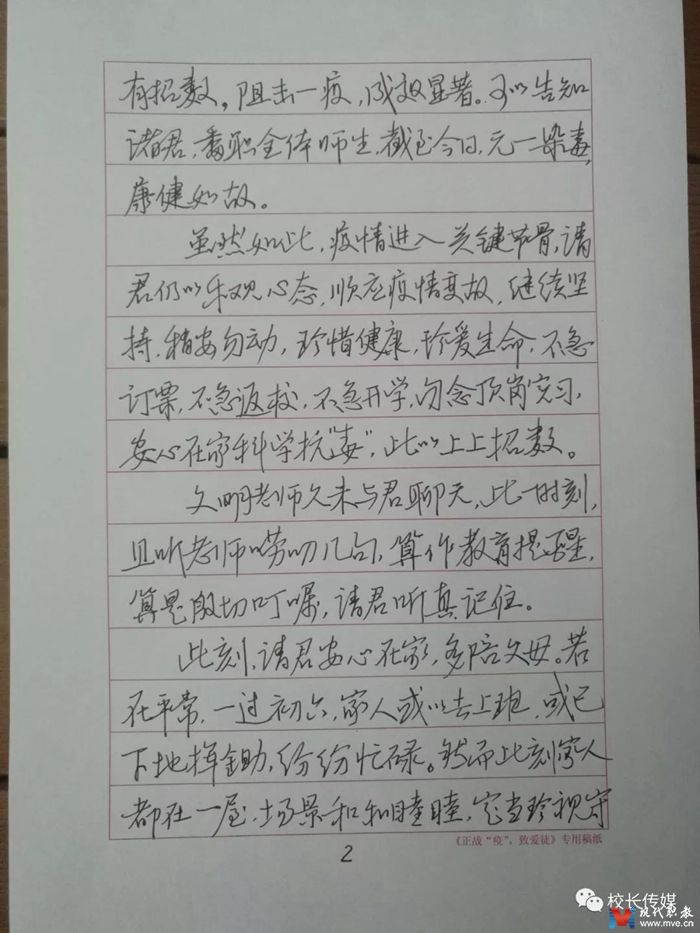 有招数，阻击一疫，成效显著。可以告知
诸君，番职全体师生，截至今日，无一染毒，
康健如故。
虽然如此，疫情进入关键节骨，请
君仍以乐观心态，顺应疫情变故，继续坚
持，稍安勿动，珍惜健康，珍爱生命，不急
订票，不急返校，不急开学，勿念顶岗实习，
安心在家科学抗“毒”，此以上上招数。
文明老师久未与君聊天，此一时刻，
且听老师唠叨几句，算作教育提醒，
算是殷切叮嘱，请君听真记住。
此刻，请君安心在家，多陪父母。若
在平常，一过初六，家人或以去上班，或已
下地挥锄，纷纷忙碌。然而此刻家人
都在一屋，场景和和睦睦，定当珍视守
《正战“疫”，致爱徒》专用稿纸
2
校长传媒
现代职教
www.mve.com.cn